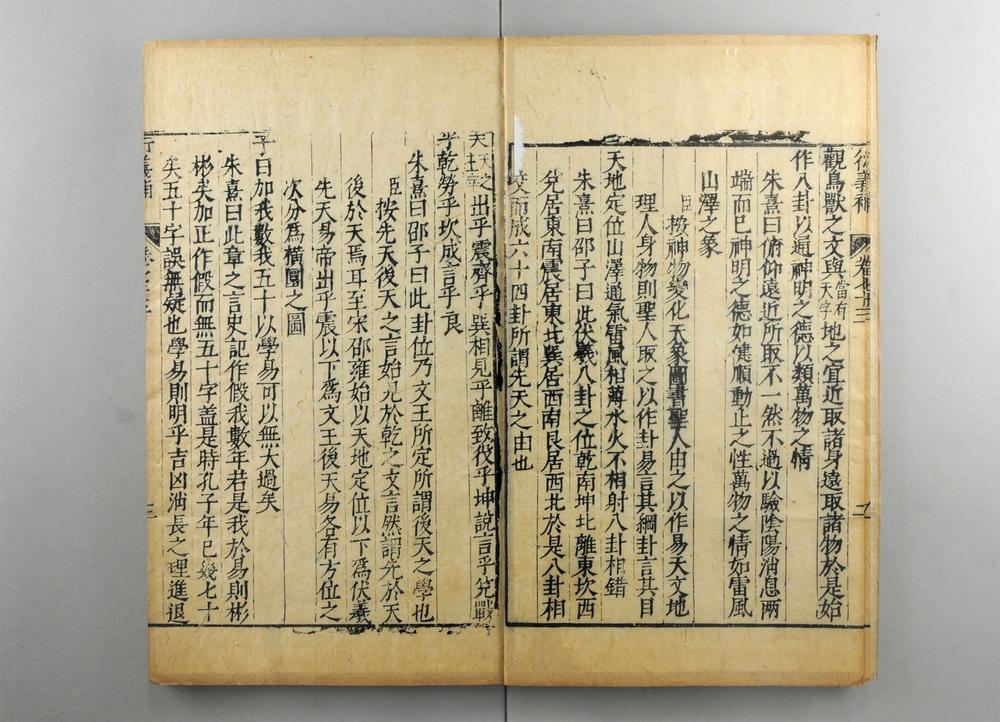 觀鳥獸之文與當有天字地之宜近取諸身遠取諸物於是始
作八卦以通神明之德以類萬物之情
朱熹曰俯仰遠近所取不一然不過以驗陰陽消息兩
端而已神明之德如健順動止之性萬物之情如雷風
山澤之象
臣按神物變化天象圖書聖人由之以作易天文地
理人身物則聖人取之以作卦易言其綱卦言其目
天地定位山澤通氣雷風相薄水火不相射八卦相錯
朱熹曰邵子曰此伏羲八卦之位乾南坤北離東坎西
兌居東南震居東北巽居西南艮居西北於是八卦相
交而成六十四卦所謂先天之由也
之出乎震齊乎巽相見乎離致伐乎坤說言乎兌戰
乎乾勞乎坎成言乎艮
朱熹曰邵子曰此卦位乃文王所定所謂後天之學也
臣按先天後天之言始見於乾之文言然謂先於天
後於天焉耳至宋邵雍始以天地定位以下爲伏羲
先天易帝出乎震以下爲文王後天易各有方位之
次分爲橫圖之圖
子曰加我數我五十以學易可以無大過矣
朱熹曰此章之言史記作假我數年若是我於易則彬
彬矣加正作假而無五十字盖是時孔子年已幾七十
矣五十字誤無疑也學易則明乎吉凶消長之理進退